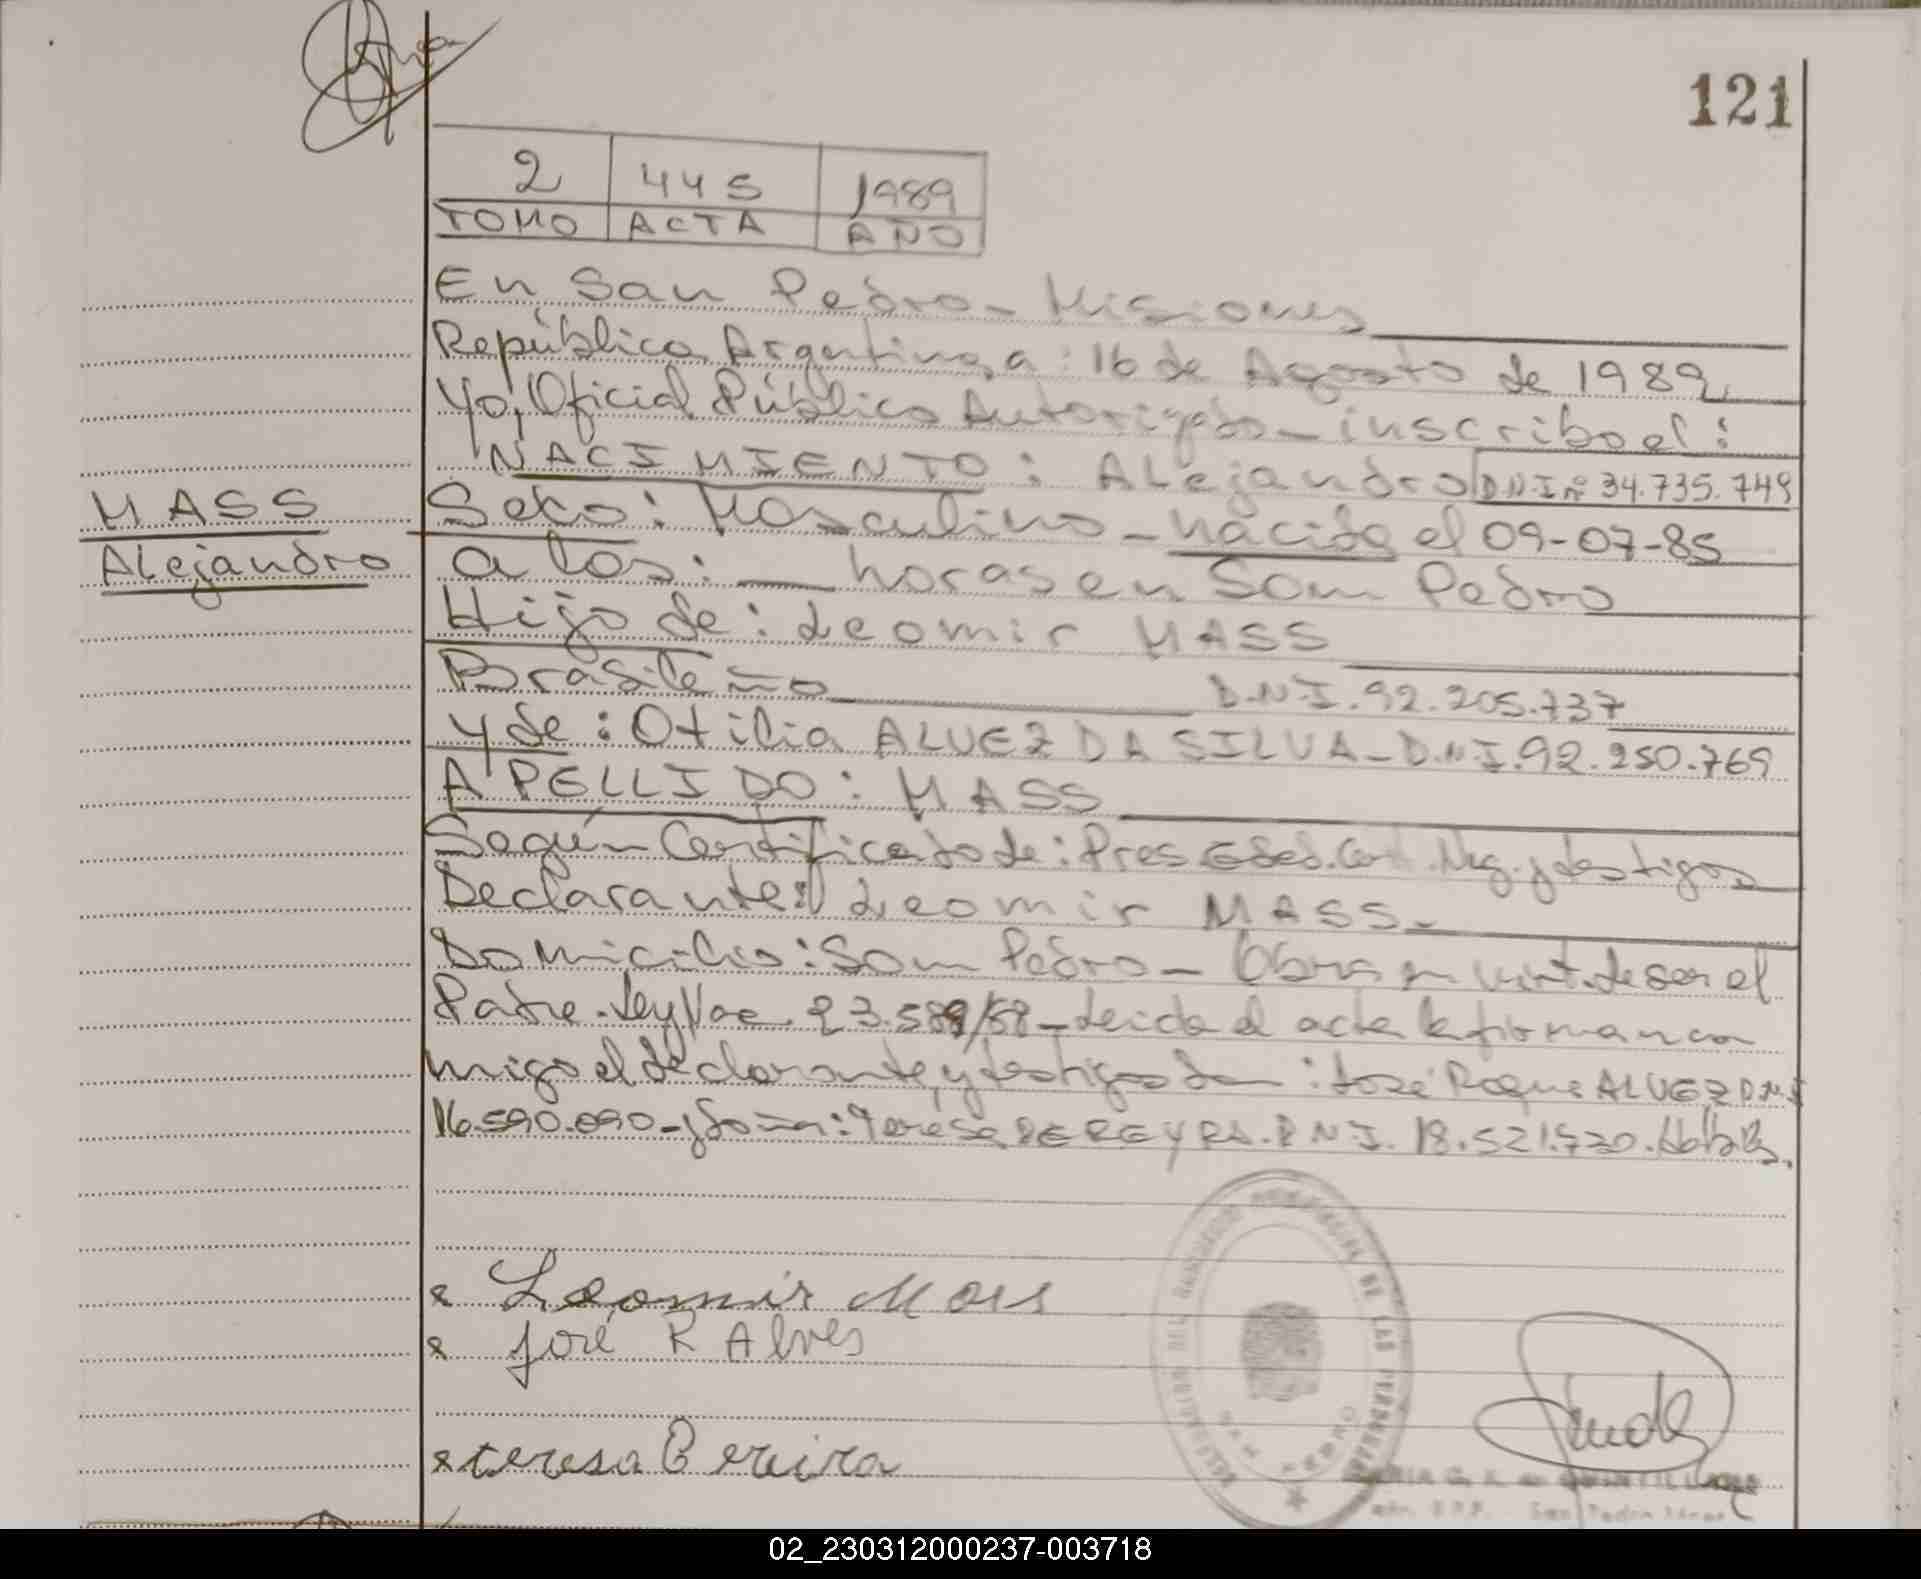 121
2 445 1989
TOMO ACTA AÑO
En San Pedro - Misiones
República Argentina, a: 16 de Agosto de 1989
Yo, Oficial Público Autorizado - inscribo el:
NACIMIENTO: Alejandro D.N.I Nº 34.735.749
MASS
Sexo: Masculino - nacido el 09-07-85
Alejandro
a las: horas en San Pedro
Hijo de: Leomir MASS
Brasileño D.N.I. 92.205.737
y de: Otilia ALVEZ DA SILVA - D.N.I. 92.250.769
APELLIDO: MASS
Según Certificado de: Pres. Neg. y testigos
Declarante: Leomir MASS.-
Domicilio: San Pedro - Obra en virt. de ser el
Padre. Ley Nac. - Leida el acta la firman con
migo el declarante, y testigos Don: José Roque ALVEZ D.N.I
16.590.090 - y Doña: Teresa PEREYRA. D.N.I. 18.521.730.
x Leomir Mass
x José R Alves
x teresa Pereira
DELEGACION DEL REGISTRO PROVINCIAL DE LAS PERSONAS
SAN PEDRO
San Pedro
02_230312000237-003718